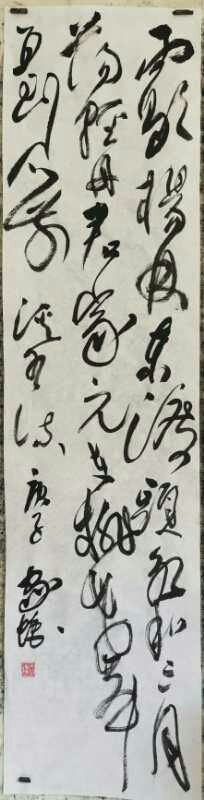 雨歇楊林東渡頭永和三月
蕩輕舟君家元在桃花岸
直到門前溪水流 庚子